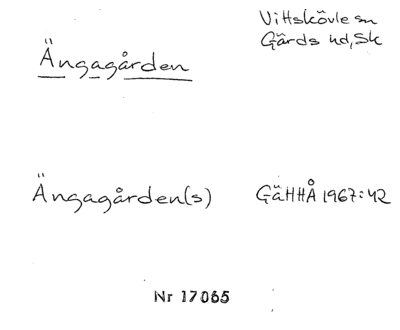 Ängagården
Vittskövle sn
Gärds hd, Sk
Ängagården(s)
GäHHÅ 1967:42
Nr 17065